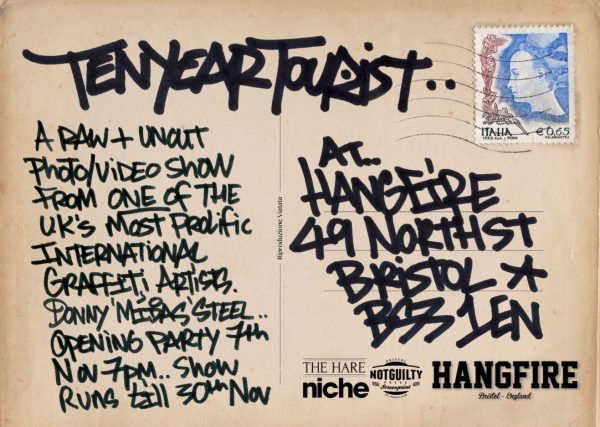 TEN YEAR TOURIST..
A RAW + UNCUT
PHOTO/VIDEO SHOW
FROM ONE OF THE
U.K'S MOST PROLIFIC
INTERNATIONAL
GRAFFITI ARTISTS.
DONNY 'MIBAC' STEEL..
OPENING PARTY 7th
NOV 7PM.. SHOW
RUNS till 30th NOV
Riproduzione Vietata
ITALIA €0,65
I.P.Z.S. S.p.A. - ROMA
AT..
HANGFIRE
49 NORTH ST
BRISTOL
BS3 1EN
THE HARE
niche
NOTGUILTY
Screenprint
HANGFIRE
Bristol - England